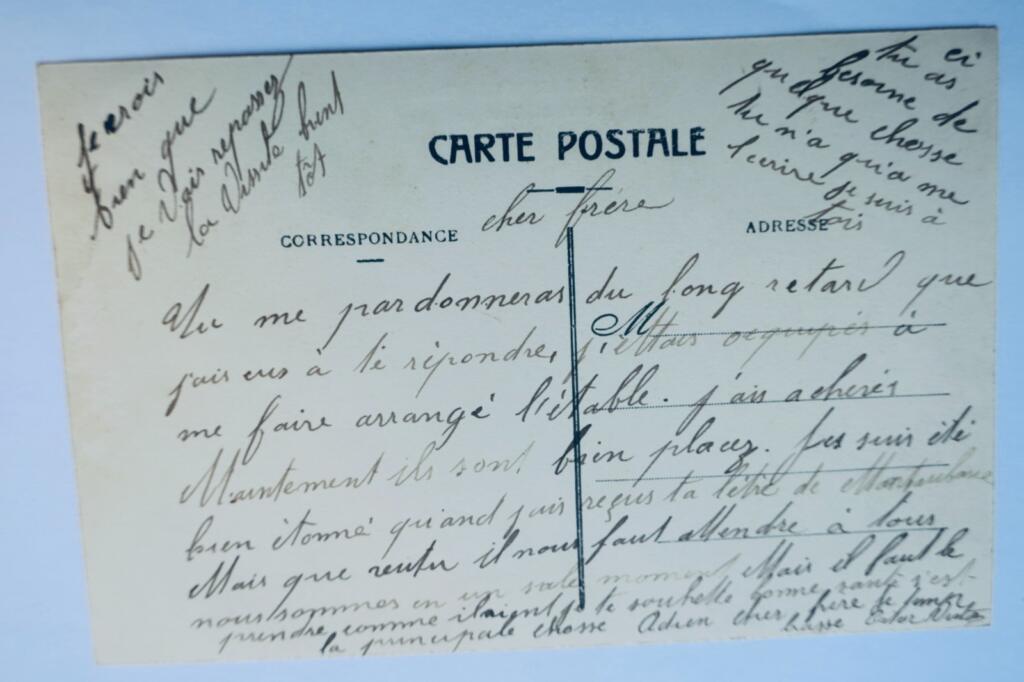 Je crois
bien que
je vais repasser
la Vissite bient
tôt
ci
tu as
besoine de
quelque chosse
tu n'a qu'a me
l'ecrire je suis à
tois
CARTE POSTALE
cher frére
CORRESPONDANCE
ADRESSE
M
Tu me pardonneras du long retard que
j'ais eus à té répondre, j'ettais occupés à
me faire arrangé l'étable. j'ais achevés
Maintement ils sont bien placez. Jes suis été
bien étonné quand j'ais reçus ta lètre de
Mais que veutu il nous faut attendre à tous
nous sommes en un sale moment Mais il faut le
prendre comme il vient je te souhette bonne santé s'est
la principale chosse Adieu cher frère je